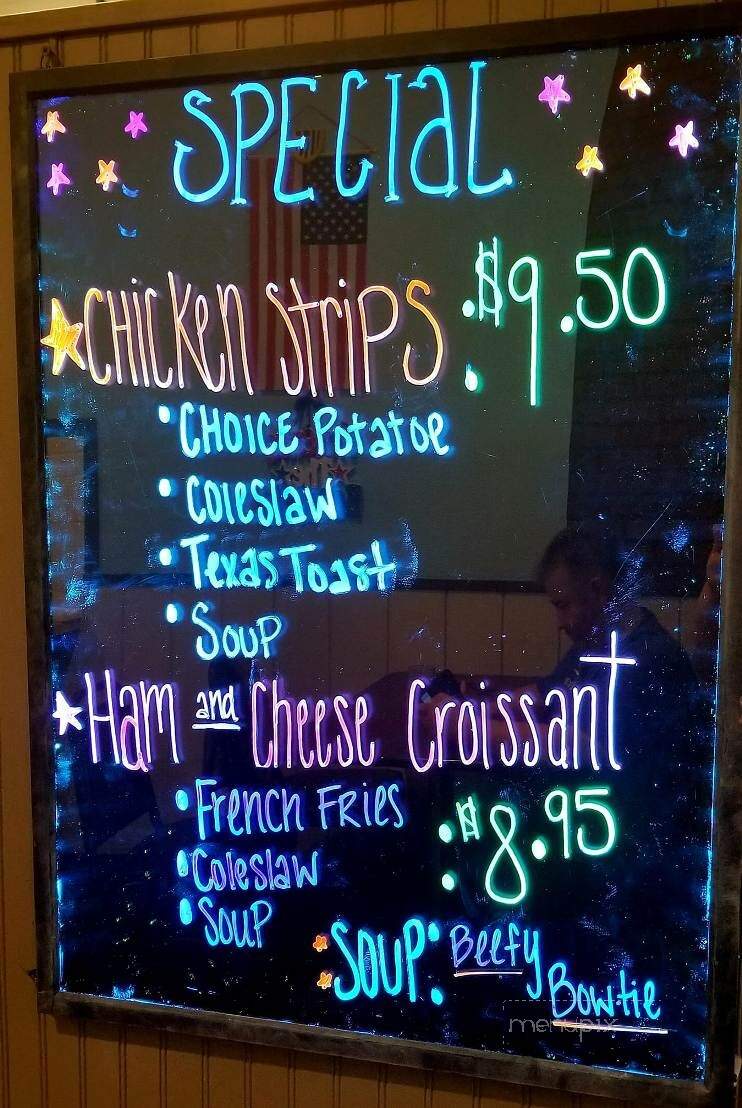 SPECIAL
CHICKEN StripS : $9.50
• CHOICE Potatoe
• Coleslaw
• Texas Toast
• Soup
Ham and Cheese Croissant
• French FRies : $8.95
• Coleslaw
• Soup
SOUP: Beefy
Bowtie
menupix